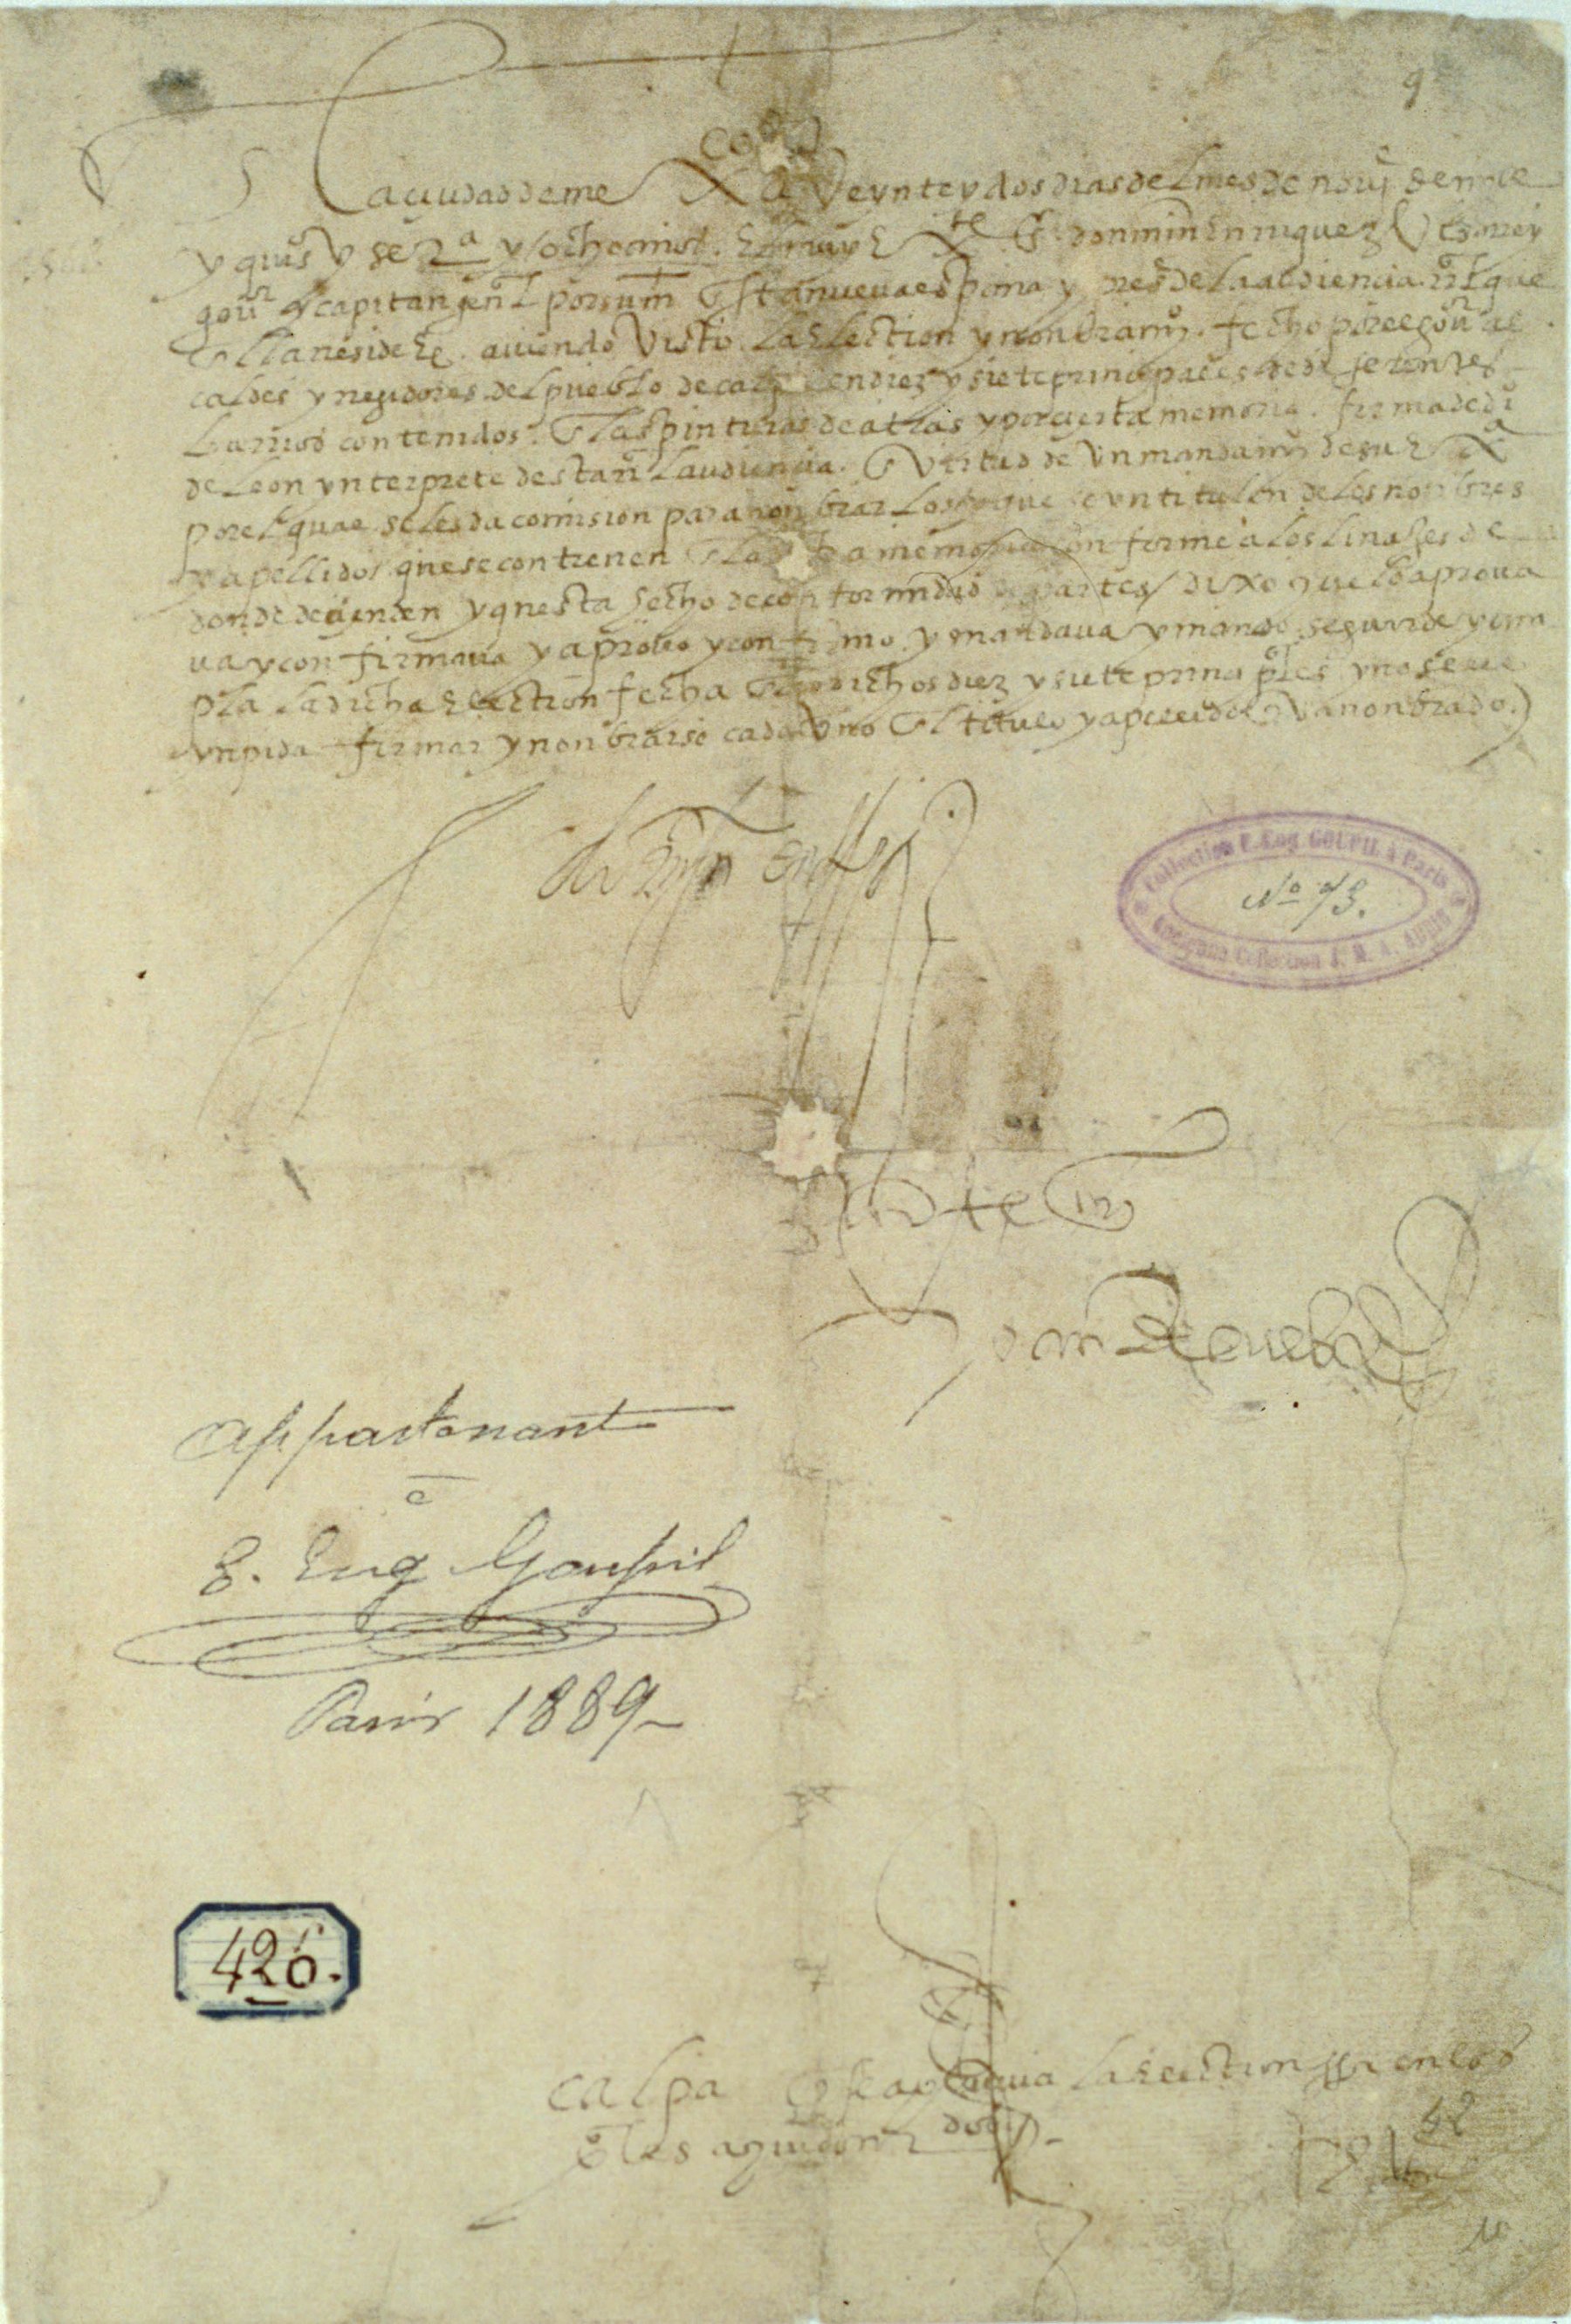 9
En la ciudad de mexico a veynte y dos dias del mes de nouj̄ de mill
y quis y sesta y ocho años. El muy Exte S. don min Enriquez Visorrey
gouor y capitan genl por su mt En sta nueua españa y presde de la audiencia rl que
En lla reside Ec. auiendo visto la Election y nonbramio. fecho por el gouor al
caldes y regidores del pueblo de calpa en diez y siete principales de diferentes
barrios contenidos. En las pinturas de atras y por cierta memoria. firmada de ju
de leon ynterprete desta rl audiencia. En virtud de vn mandamio de su Exa
por el qual se les da comision para nonbrar los que se yntitulen de los nonbres
y apellidos que se contienen En la dha memoria conforme a los linajes de
donde decienden y questa fecho de conformidad de partes / dixo que lo aproua
ua y confirmaua y aprobo y confirmo. y mandaua y mando se guarde y cum
pla la dicha Election fecha En los dichos diez y siete principles y no se les
ynpida firmar y nonbrarse cada vno El titulo y apellido En q va nonbrado.
don mjn enrriqz
Collection E. Eug. GOUPIL à Paris
No 73.
Ancienne Collection J. M. A. AUBIN
Ante my
joan de cueba
Appartenant
à
E. Eug Goupil
Paris 1889
426.
calpa En que aprueua la Election
ples aqui